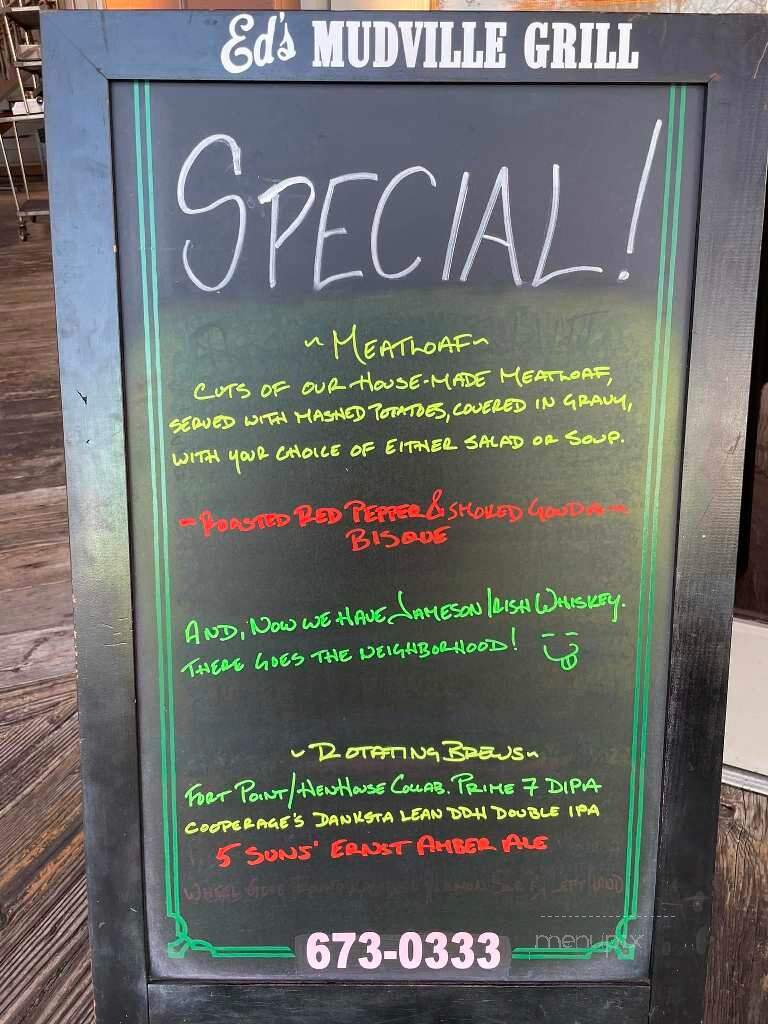 Ed's MUDVILLE GRILL
SPECIAL!
~ MEATLOAF ~
CUTS OF OUR HOUSE-MADE MEATLOAF,
SERVED WITH MASHED POTATOES, COVERED IN GRAVY,
WITH YOUR CHOICE OF EITHER SALAD OR SOUP.
~ ROASTED RED PEPPER & SMOKED GOUDA ~
BISQUE
AND, NOW WE HAVE JAMESON IRISH WHISKEY.
THERE GOES THE NEIGHBORHOOD!
~ ROTATING BREWS ~
FORT POINT/HENHOUSE COLLAB. PRIME 7 DIPA
COOPERAGE'S DANKSTA LEAN DDH DOUBLE IPA
5 SUNS' ERNST AMBER ALE
673-0333
menupix